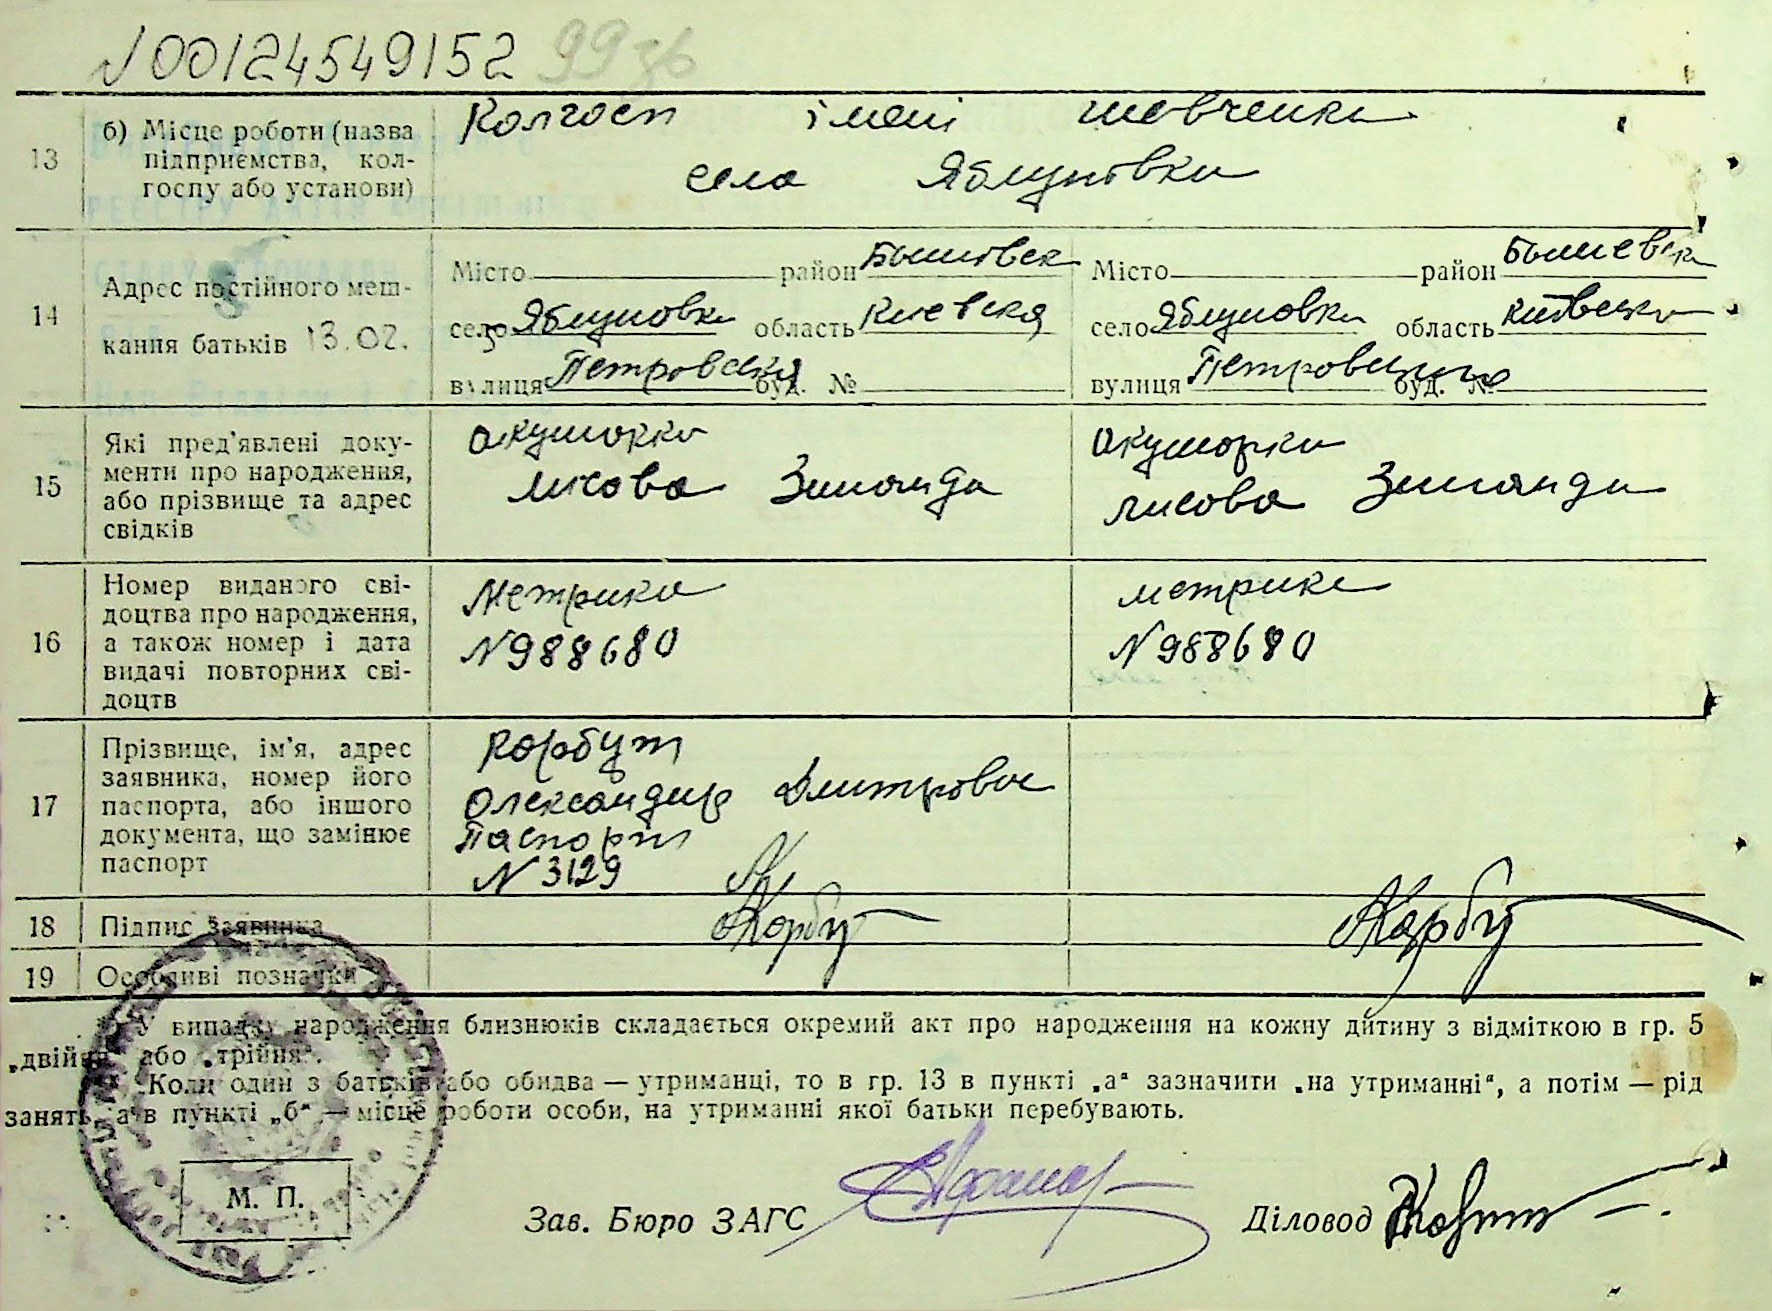 N00124549152 99зв
13
б) Місце роботи (назва
підприємства, кол-
госпу або установи)
Колгосп імені шевченка
села Яблуновки
14
Адрес постійного меш-
кання батьків 13.02.
Місто район
село Яблуновка область Киевская
вулиця Петровская буд. №
Місто район
село Яблуновка область
вулиця Петровського буд. №
15
Які пред'явлені доку-
менти про народження,
або прізвище та адрес
свідків
акушорка
лисова Зинаида
акушорка
лисова Зинаида
16
Номер виданого сві-
доцтва про народження,
а також номер і дата
видачі повторних сві-
доцтв
Метрика
N988680
метрика
N988680
17
Прізвище, ім'я, адрес
заявника, номер його
паспорта, або іншого
документа, що замінює
паспорт
Корбут
Олександир Дмитрович
Паспорт
N 3129
18
Підпис заявника
АКорбут
АКорбут
19
Особливі позначки
У випадку народження близнюків складається окремий акт про народження на кожну дитину з відміткою в гр. 5
„двійня“ або „трійня“.
Коли один з батьків або обидва — утриманці, то в гр. 13 в пункті „а“ зазначити „на утриманні“, а потім — рід
занять, а в пункті „б“ — місце роботи особи, на утриманні якої батьки перебувають.
М. П.
Зав. Бюро ЗАГС
Діловод